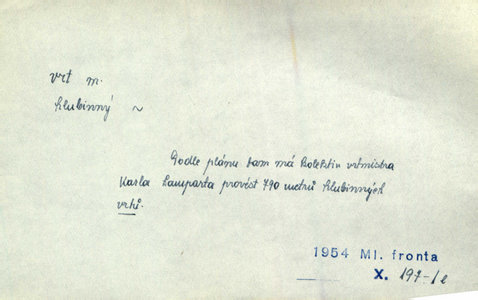 vrt m.
hlubinný ~
Podle plánu tam má kolektiv vrtmistra
Karla Lamparta provést 790 metrů hlubinných
vrtů.
1954 Ml. fronta
X. 197-1e